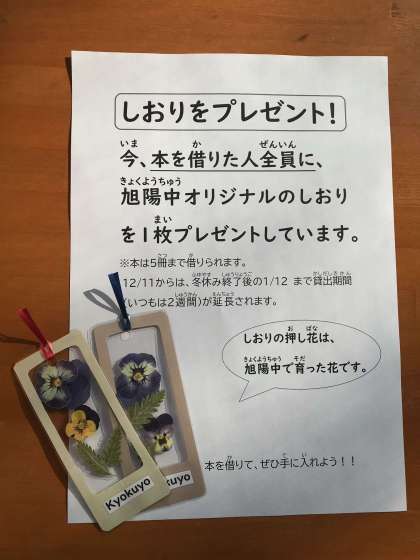 しおりをプレゼント！
今、本を借りた人全員に、
旭陽中オリジナルのしおり
を１枚プレゼントしています。
※本は5冊まで借りられます。
12/11からは、冬休み終了後の1/12 まで貸出期間
(いつもは2週間)が延長されます。
しおりの押し花は、
旭陽中で育った花です。
本を借りて、ぜひ手に入れよう！！
Kyokuyo
kuyo